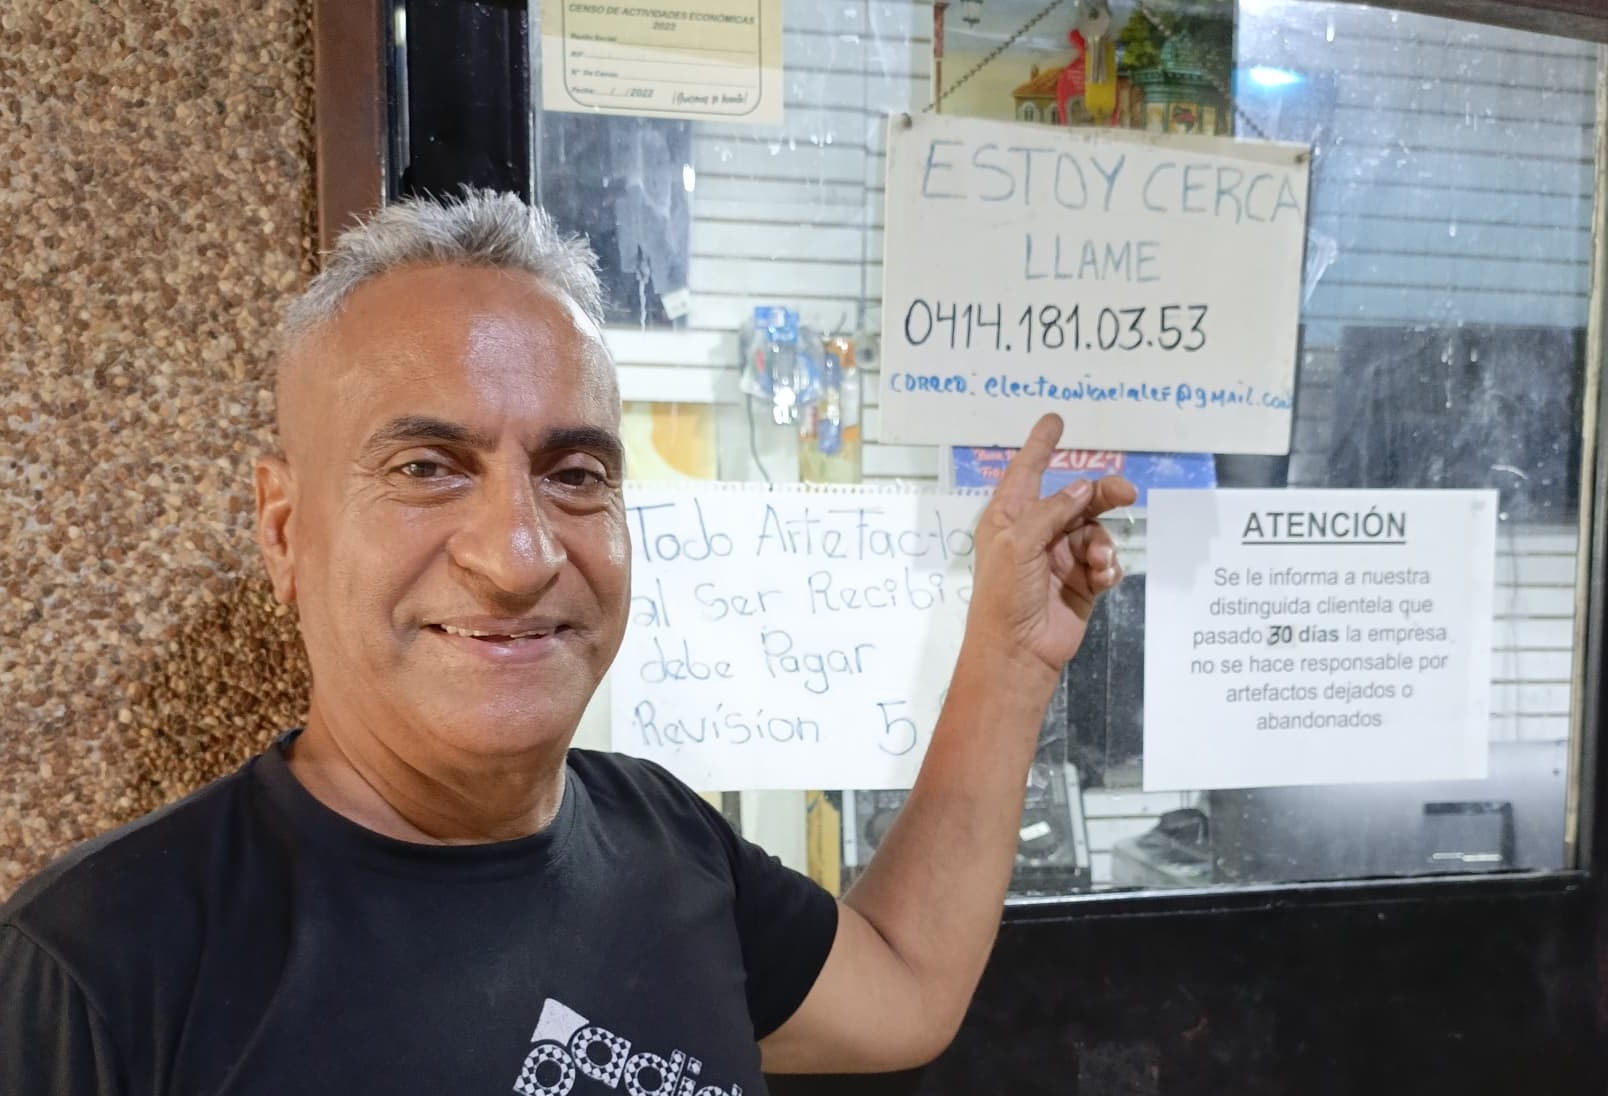 CENSO DE ACTIVIDADES ECONÓMICAS
2022
Razón Social
RIF
N° De Censo
Fecha: / /2022
ESTOY CERCA
LLAME
0414.181.03.53
CORREO:
2024
Todo Artefacto
al Ser Recibi
debe Pagar
Revisión 5
ATENCIÓN
Se le informa a nuestra
distinguida clientela que
pasado 30 días la empresa
no se hace responsable por
artefactos dejados o
abandonados